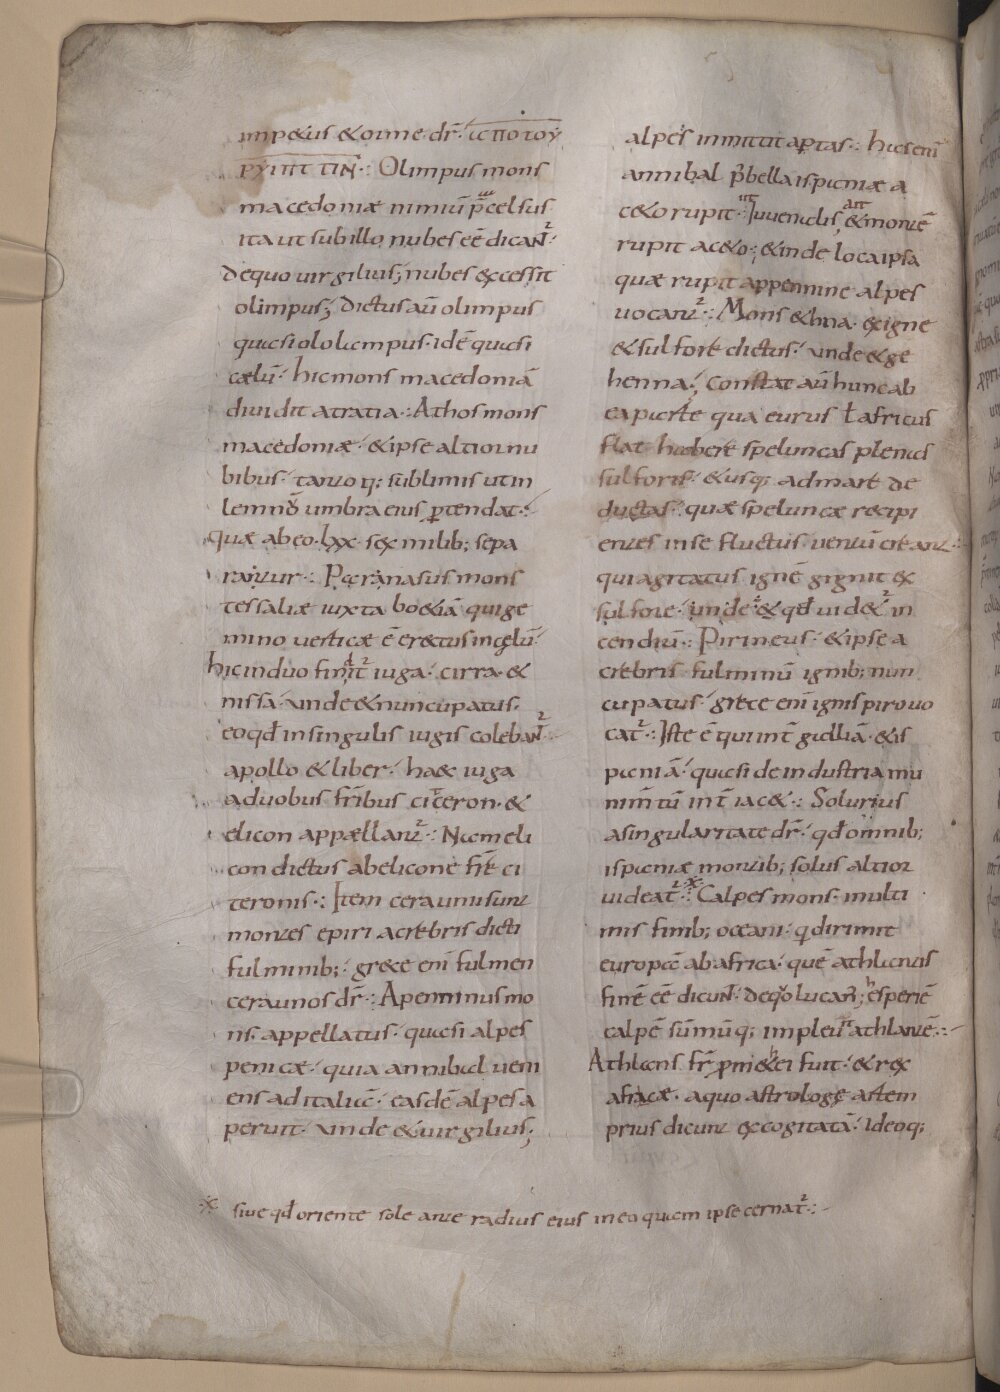 impetus & omne dr̄ ιc πο τογ
πγιπτ τιη̄ ·:· Olimpus mons
macedoniæ nimiū p̄celsus
ita ut sub illo nubes eē dicanť·
de quo virgilius; nubes excessit
olimpus; dictus aū olimpus
quasi ololampus· idē quasi
cælū· hic mons macedoniā
dividit a tratia ·:· Athos mons
macedoniæ· & ipse altior nu
bibus· tantoq; sublimis ut in
lemnō umbra eius ꝑtendat·:
quæ ab eo· lxx· sex milib; sepa
rantur ·:· Parnasus mons
tessaliæ iuxta boetiā qui ge
mino verticæ ē erectus in cęlū·
hic in duo finit̄ iuga· cirra· &
nissa· unde & nuncupatus·
eo qđ in singulis iugis colebanť·
apollo & liber· hæc iuga
a duobus fr̄ibus citeron· &
elicon appællanť·: Nam eli
con dictus ab elicone fr̄e ci
teronis ·:· Item ceraunii sunt
montes epiri a crebris dicti
fulminib;· grece eni fulmen
ceraunos dr̄ ·:· Apenninus mo
ns· appellatus· quasi alpes
penicæ· quia annibal veni
ens ad italiā· easdē alpes a
peruit· unde & virgilius;
alpes inmittit aptas ·:· has enī
annibal p̄ bella ispaniæ a
ceto rupit· Iuvenalis, & montē
rupit aceto; & inde loca ipsa
quæ rupit appennine alpes
vocanť ·:· Mons & hna· ex igne
& sulfore dictus· unde & ge
henna; Constat aū hunc ab
ea parte qua eurus ł africus
flat habere speluncas plenas
sulforis· & usq; ad mare de
ductas· quæ speluncæ recipi
entes in se fluctus ventū creant·:
qui agitatus ignē gignit ex
sulfore· unde & qđ videť in
cendiū ·:· Pirineus· & ipse a
crebris fulminū ignib; nun
cupatus· grece eni ignis pir vo
cať ·:· Iste ē qui int̄ galliā· & is
paniā· quasi de industria mu
nim̄tū int̄ iacet ·:· Solurius
a singularitate dr̄· qđ omnib;
ispaniæ montib; solus altior
videať ·:· Calpes mons· multi
mis finib; oceani· q̇ dirimit
europā ab africa· quē athlantis
finē eē dicunť· de quo lucan̄; hesperiē
calpē sūmūq; implevit athlantē·:-
Athlans fr̄ promethei fuit· & rex
africæ· a quo astrologę artem
prius dicunt excogitatā· Ideoq;
sive qđ oriente sole ante radius eius in eo quam ipse cernať ·:-